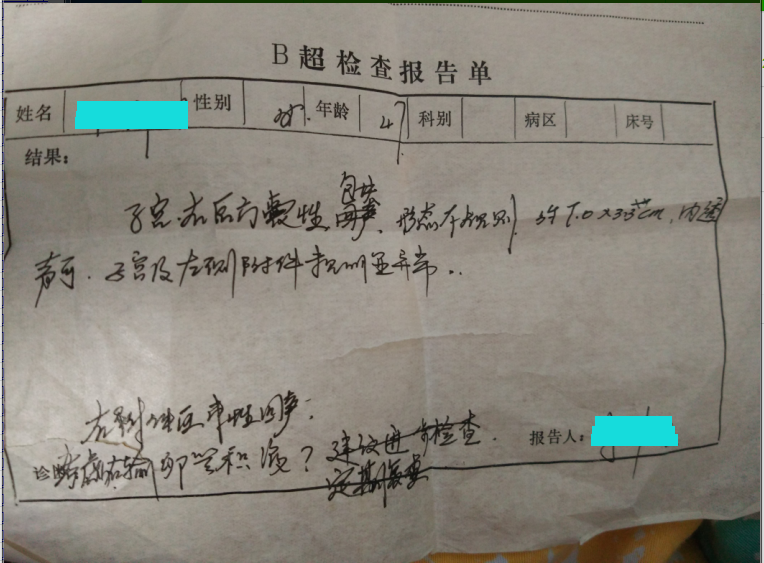 B超检查报告单
姓名 性别 年龄 47 科别 病区 床号
结果：
包块
子宫右后方囊性回声、形态不规则，约7.0×3.3cm，内透
声可．子宫及左侧附件未见明显异常．
右附件区囊性回声：
诊断考虑右输卵管积液？建议进一步检查．
定期复查
报告人：